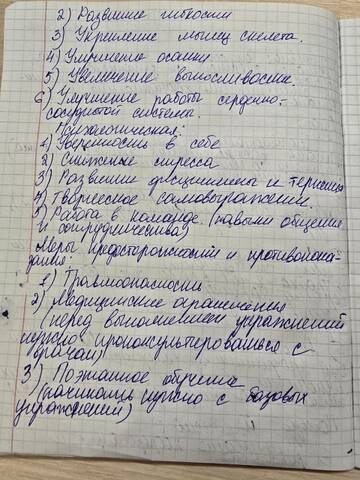 2) Развитие гибкости
3) Укрепление мышц скелета.
4) Улучшение осанки
5) Увеличение выносливости.
6) Улучшение работы сердечно-
сосудистой системы.
Психологическая:
1) Уверенность в себе
2) Снижение стресса
3) Развитие дисциплины и терпения
4) Творческое самовыражении.
5) Работа в команде (навыки общения
и сотрудничества)
Меры предосторожности и противопока-
зания:
1) Травмоопасности
2) Медицинские ограничения
(перед выполнением упражнений
нужно проконсультироваться с
врачом)
3) Поэтапное обучение
(начинать нужно с базовых
упражнений)